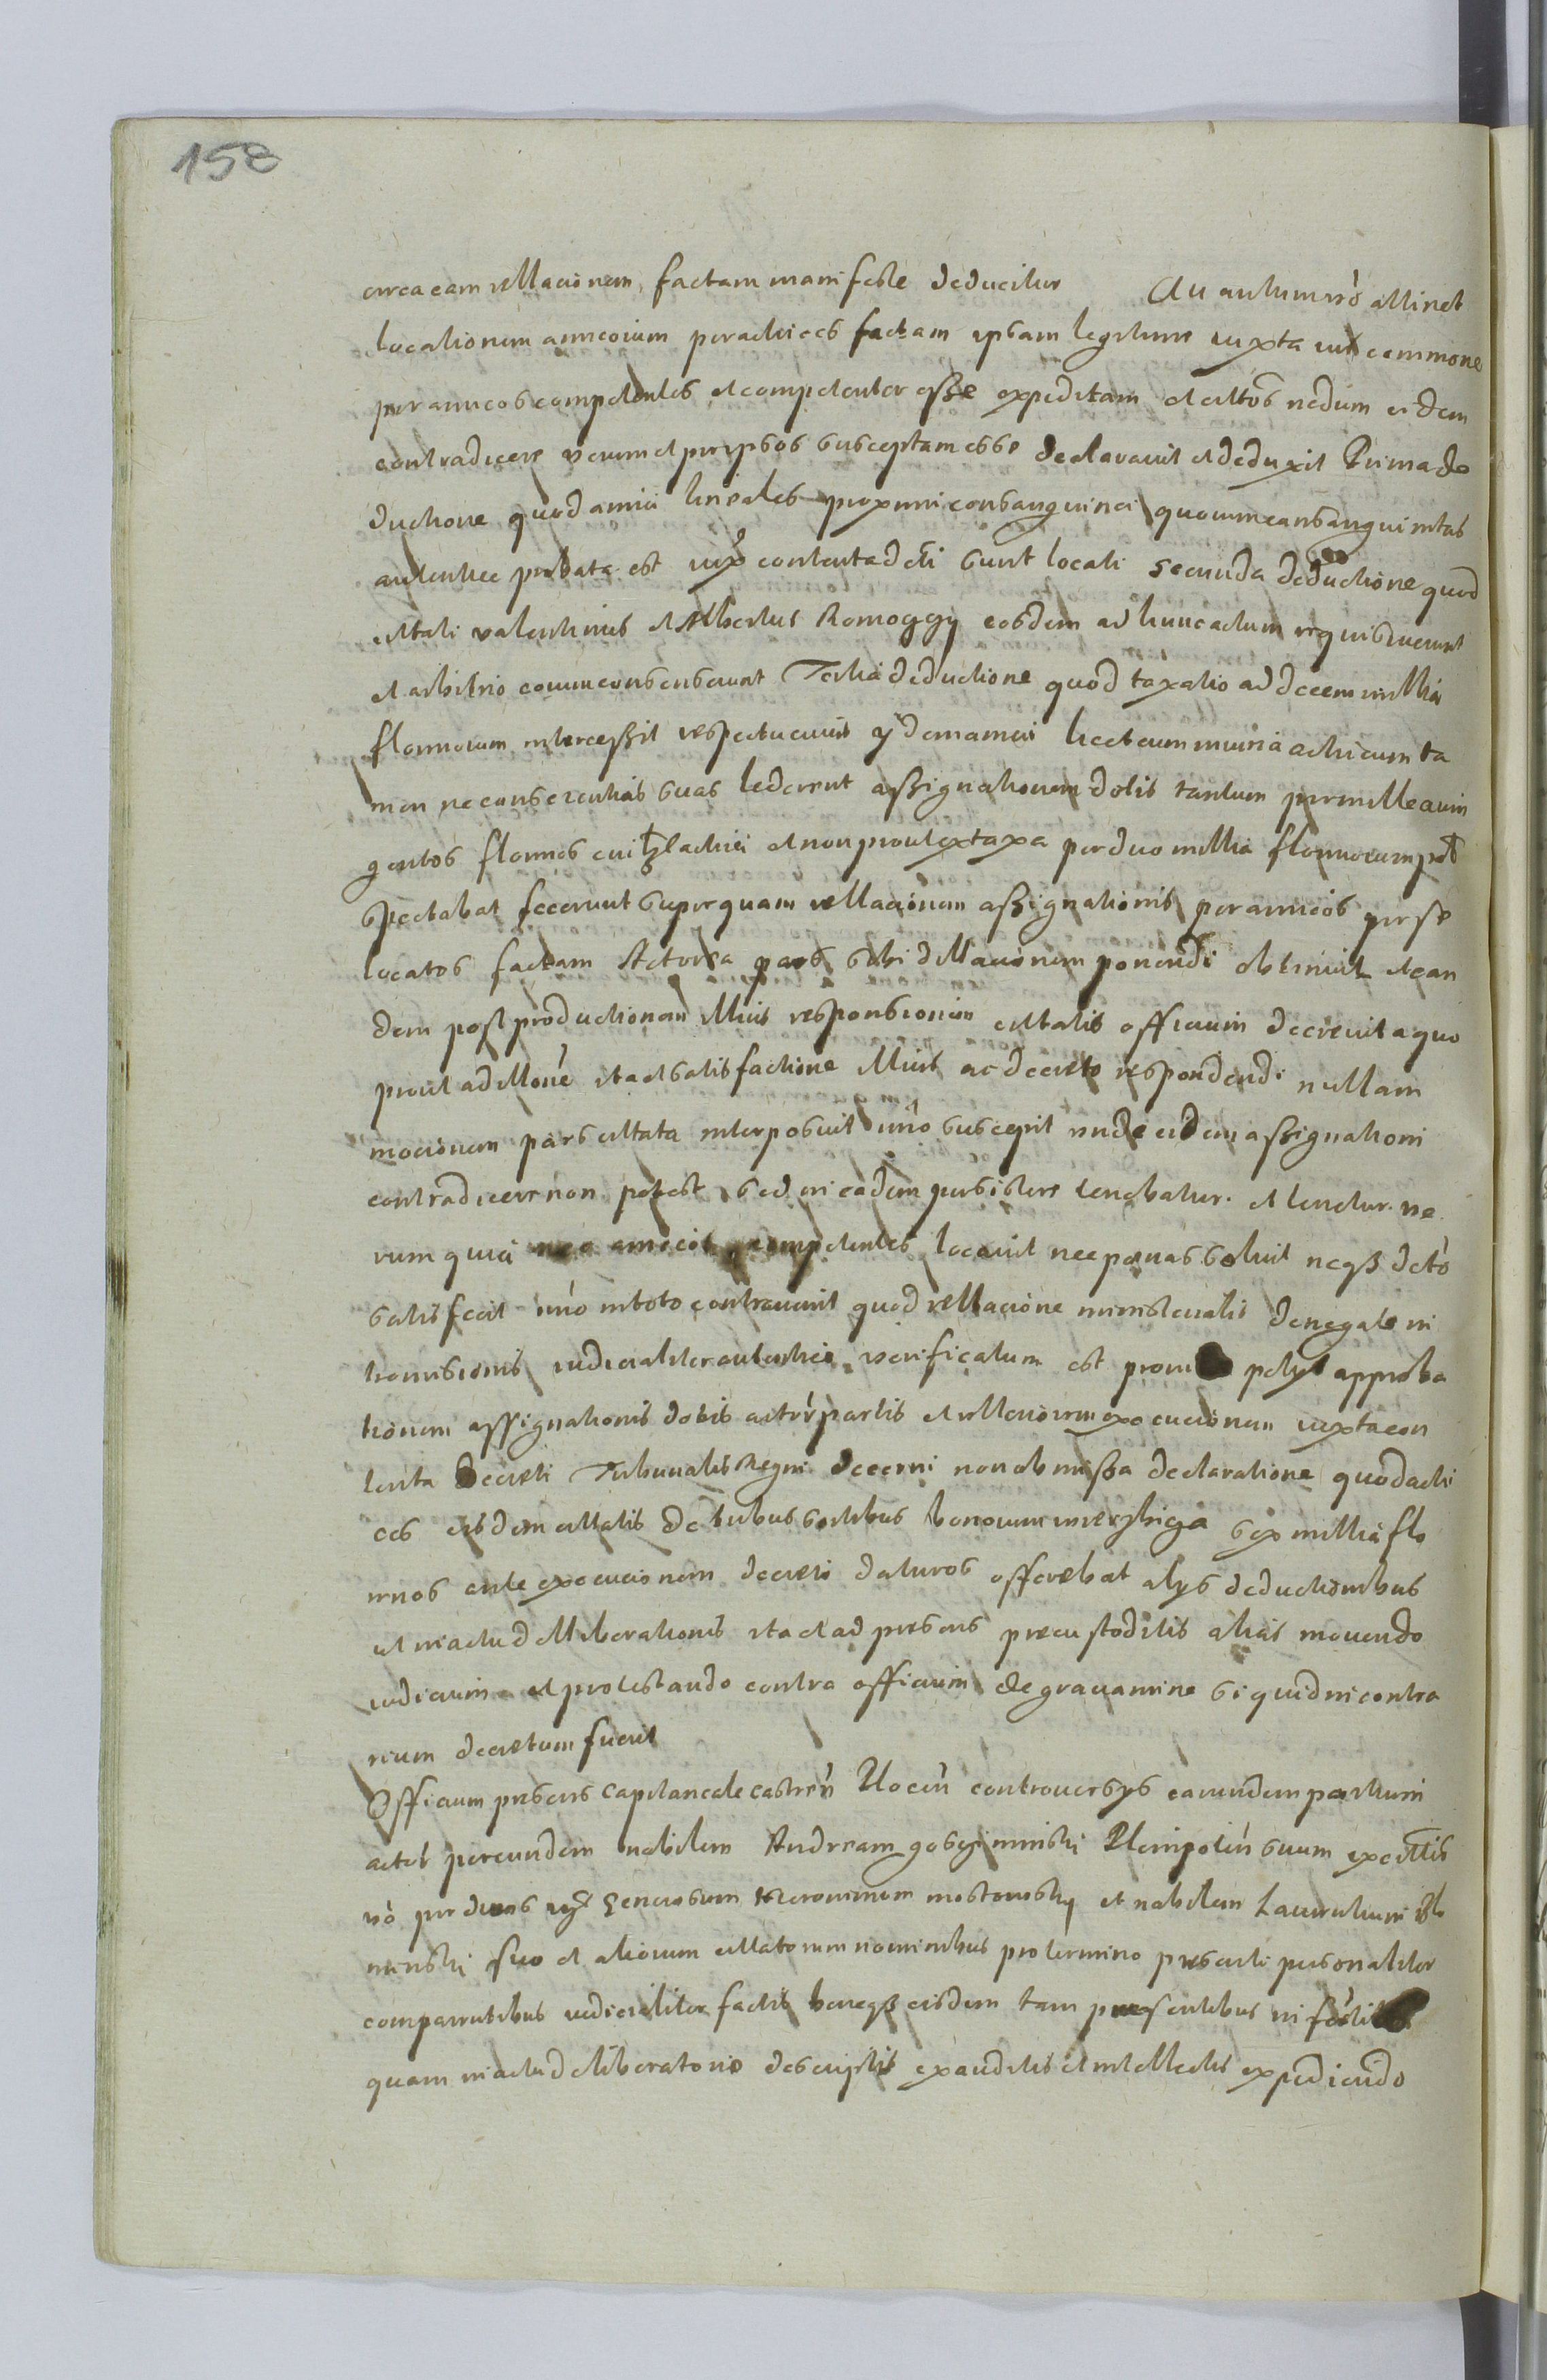 158
circa eam rellacionem factam manifeste deducitur Quantum vero attinet
locationem amicorum per actrices factam ipsam legitime iuxta ius commone
per amicos competentes et competenter esse expeditam et cittos nedum eidem
contradicere verum et per ipsos susceptam esse declaravit et deduxit Prima de
ductione quod amici lineales proximi consanguinei quorum consanguinitas
autentice probata est iuxta contenta dti sunt locati secunda deductione quod
cittati valentinus et Albertus Romoggy eosdem ad hunc actum requisiverunt
et arbitrio eorum consenserunt Tertia deductione quod taxatio ad decem millia
florinorum intercessit respectu cuius ydem amici licet cum iniuria actricum ta
men ne conscientias suas lederent assignationem dotis tantum per mille quin
gentos florinos cuilz actrici et non prout ex taxa per duo millia florinorum
spectabat fecerunt super quam rellacionem assignationis per amicos per se
locatos factam Actorea pars sibi dillacionem ponendi obtinuit et ean
dem post productionem illius responsionem cittatis officium decrevit a quo
prout ad illone ita et satisfactione illius ac decreto respondendi nullam
mocionem pars cittata interposuit imo suscepit unde eidem assignationi
contradicere non potest sed in eadem persistere tenebatur et tenetur ve
rum quia nec amicos competentes locavit nec pœnas soluit negz dcto
satisfecit imo in toto contravenit quod rellacione ministerialis denegate in
tromissionis iudicialiter autentice verificatum est proin petyt approba
tionem assignationis dotis actor partis et ulteriorem execucionem iuxta con
tenta Decreti Tribunalis Regni decerni non obmissa declaratione quod actri
ces eisdem cittatis de tribus sortibus bonorum sex millia flo
rinos ante execucionem decreti daturos offerebat alys deductionibus
et in actu deliberationis ita et ad presens precustoditis alias movendo
iudicium et protestando contra officium de gravamine si quid in contra
rium decretum fuerit
Officium presens Capitaneale castren controversys earundem partium
actor per eundem nobilem Andream plenipoten suum ex cittis
vo per dictos Generosum Hieronimum et nobilem Laurentium
suo et aliorum cittatorum nominibus pro termino presenti personaliter
comparentibus iudicialiter factis benegz eisdem tam presentibus
quam in actu deliberatorio descriptis exauditis et intellectis expediendo